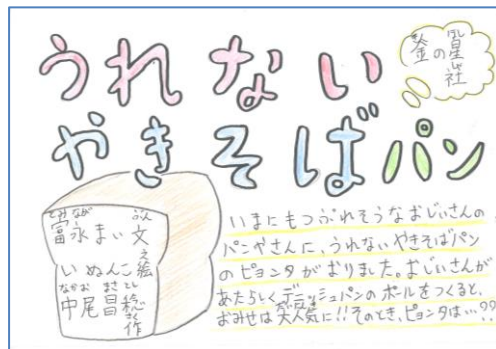 うれない
やきそばパン
金の星社
富永まい文
いぬんこ絵
中尾昌稔作
いまにもつぶれそうなおじいさんの
パンやさんに、うれないやきそばパン
のピョンタがおりました。おじいさんが
あたらしくデニッシュパンのポールをつくると、
おみせは大人気に!!そのとき、ピョンタは…??